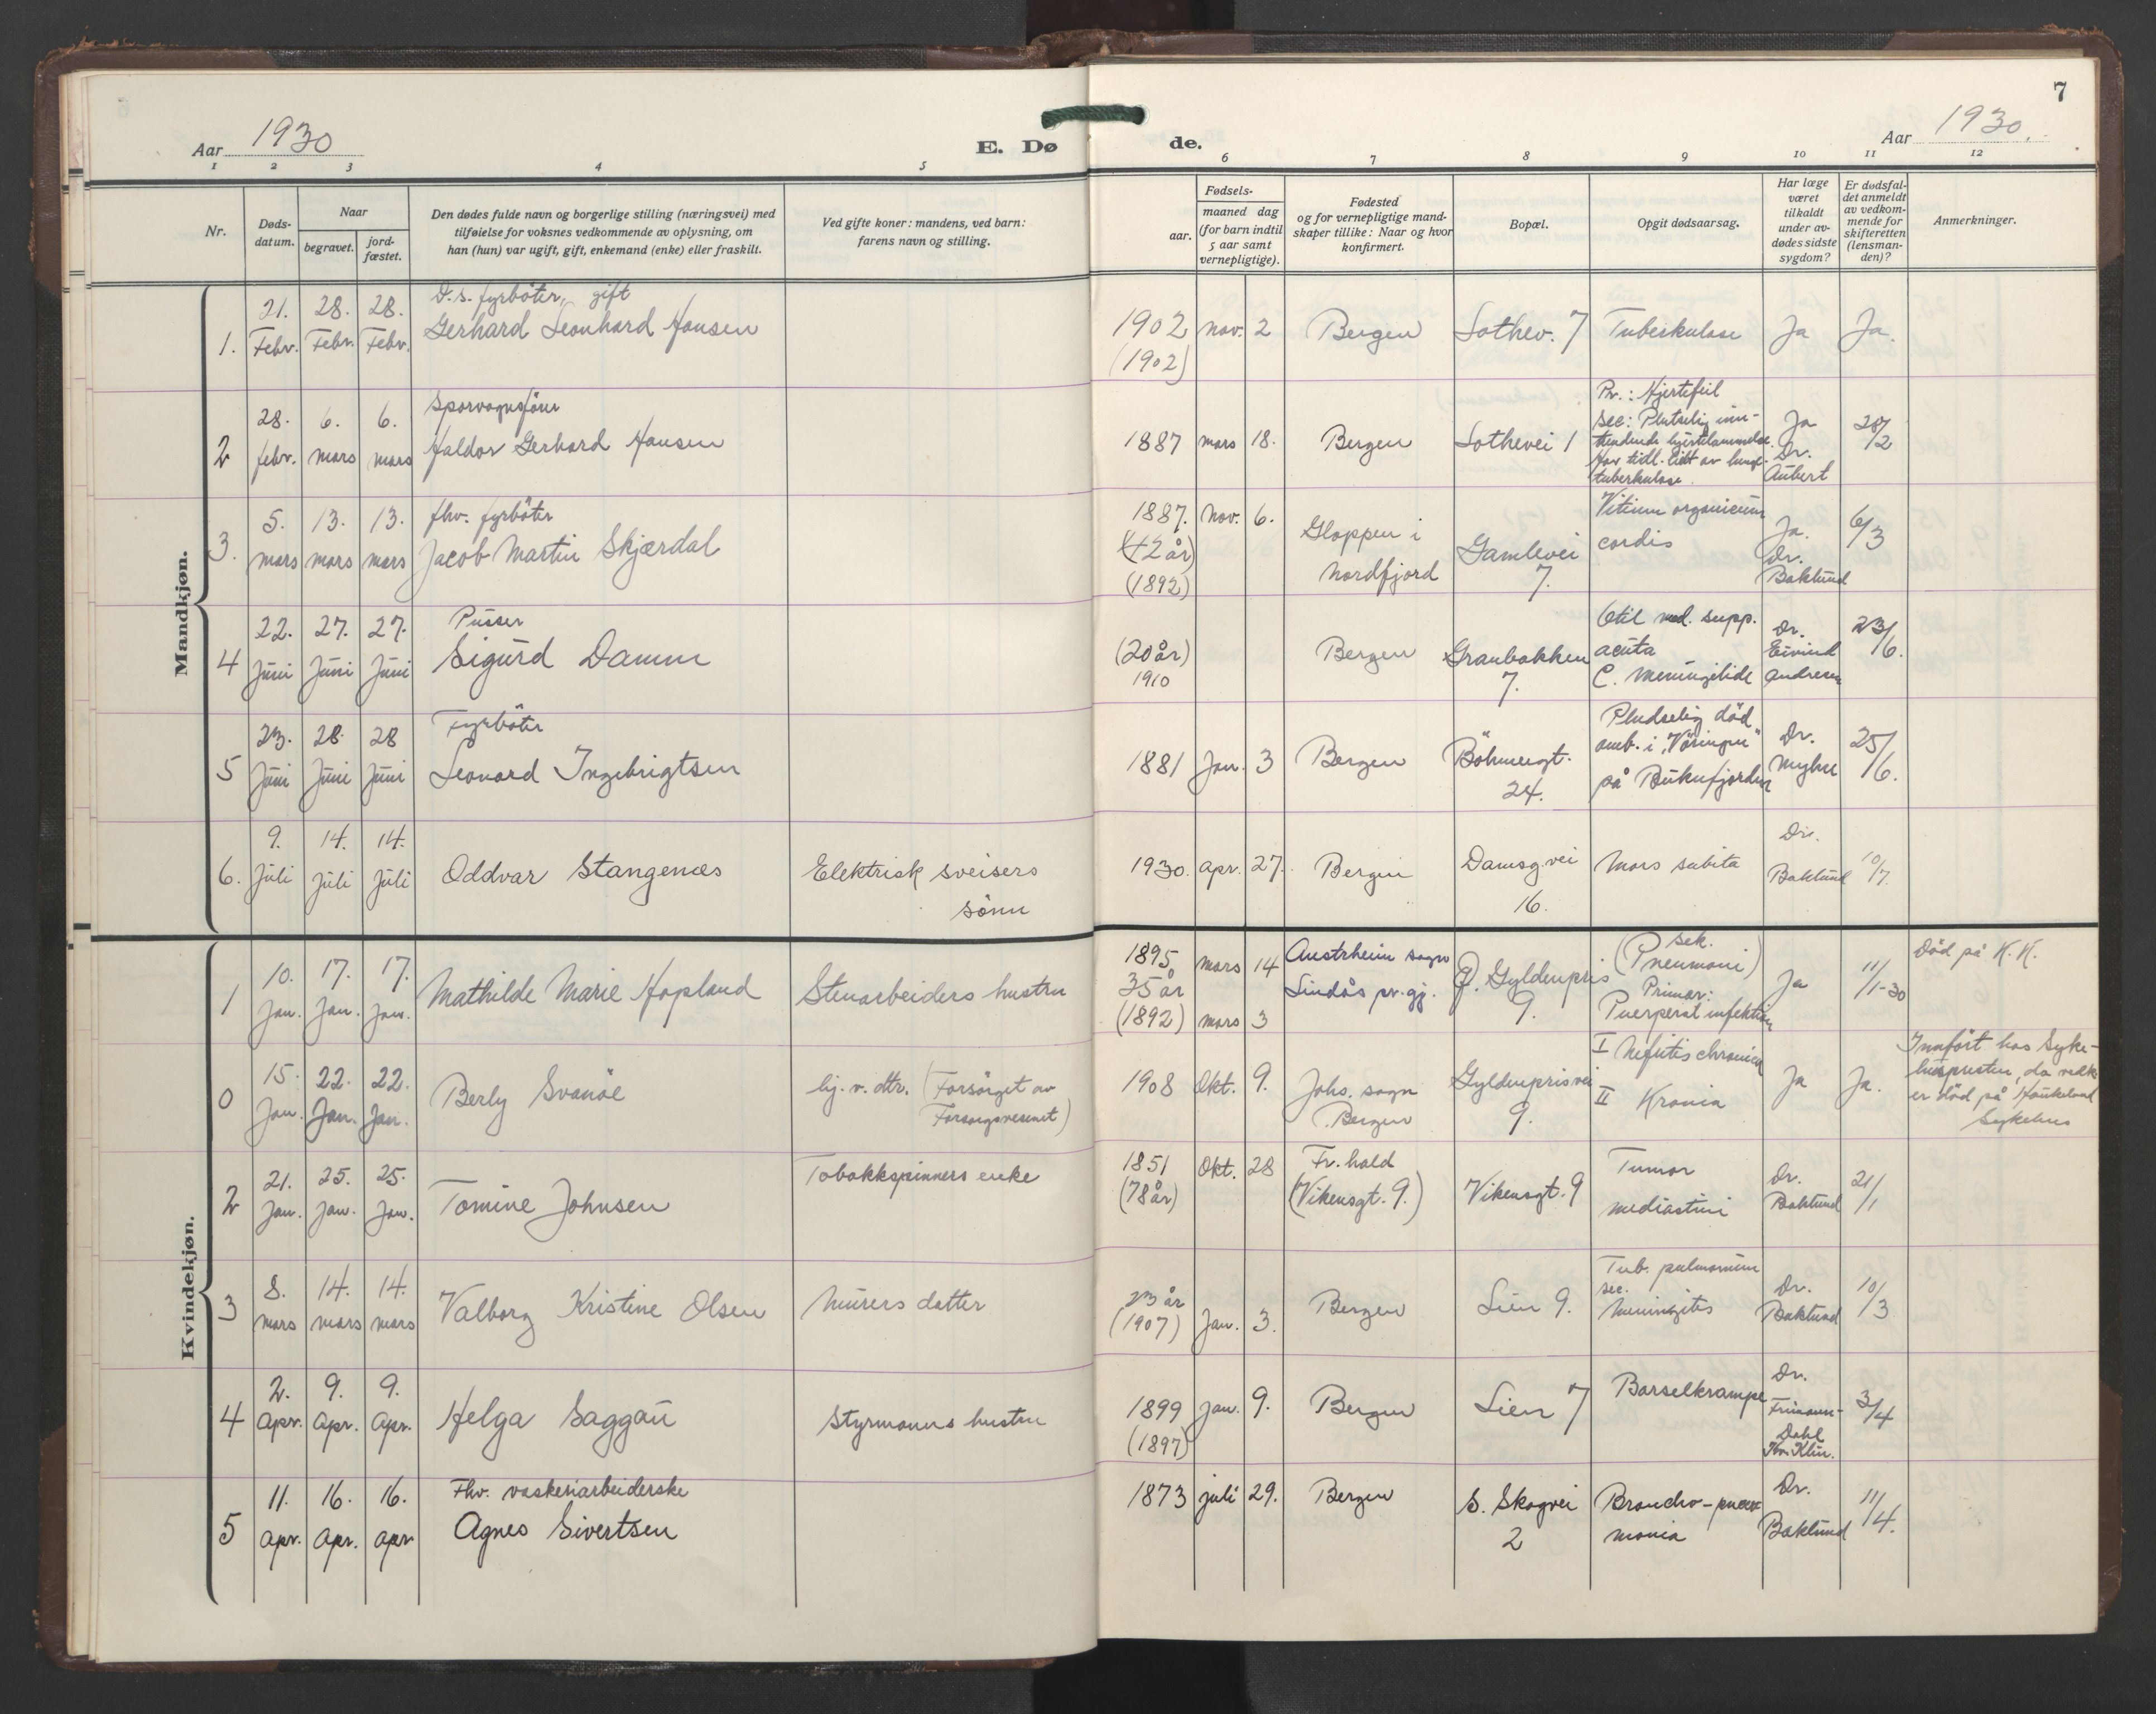 7
Aar 1930
E. Dø
de.
Aar 1930.
1 2 3 4 5 6 7 8 9 10 11 12
Nr.
Døds-
datum.
Naar
begravet.
jord-
fæstet.
Den dødes fulde navn og borgerlige stilling (næringsvei) med
tilføielse for voksnes vedkommende av oplysning, om
han (hun) var ugift, gift, enkemand (enke) eller fraskilt.
Ved gifte koner: mandens, ved barn:
farens navn og stilling.
Fødsels-
aar.
maaned dag
(for barn indtil
5 aar samt
vernepligtige).
Fødested
og for vernepligtige mand-
skaper tillike: Naar og hvor
konfirmert.
Bopæl.
Opgit dødsaarsag.
Har læge
været
tilkaldt
under av-
dødes sidste
sygdom?
Er dødsfal-
det anmeldt
av vedkom-
mende for
skifteretten
(lensman-
den)?
Anmerkninger.
Mandkjøn.
1.
21.
Febr.
28.
Febr.
28.
Febr.
D.s. fyrbøter, gift
Gerhard Leonhard Hansen
1902
(1902)
nov. 2
Bergen
Lothev. 7
Tuberkulose
Ja
Ja.
2
28.
febr.
6.
mars
6.
mars
Sporvognsfører
Haldor Gerhard Hansen
1887
mars 18.
Bergen
Lothevei 1
Pr.: Hjertefeil
Sec: Plutselig inn-
tredende hjertelammelse.
Har tidl. lidt av lunge-
tuberkulose.
Ja
Dr.
Aubert
28/2
3.
5.
mars
13.
mars
13.
mars
fhv. fyrbøter
Jacob Martin Skjærdal
1887.
(42 år)
(1892)
Nov. 6.
Gloppen i
Nordfjord
Gamlevei
7.
Vitium organicum
cordis
Ja.
Dr.
Baklund
6/3
4
22.
Juni
27.
Juni
27.
Juni
Pusser
Sigurd Damm
(20 år)
1910
Bergen
Granbakken
7.
Otit med. supp.
acuta
C. meningitide
Dr.
Eivind
Andresen
23/6.
5
23.
Juni
28.
Juni
28
Juni
Fyrbøter
Leonard Ingebrigtsen
1881
Jan. 3
Bergen
Böhmergt.
24.
Pludselig død
omb. i "Vøringen"
på Buknfjorden
Dr.
Myhre
25/6.
6.
9.
Juli
14.
Juli
14.
Juli
Oddvar Stangenes
Elektrisk sveisers
sønn
1930.
Apr. 27.
Bergen
Damsg.vei
16.
Mors subita
Dr.
Baklund
10/7.
Kvindekjøn.
1
10.
Jan.
17.
Jan.
17.
Jan.
Mathilde Marie Hopland
Stenarbeiders hustru
1895
35 år
(1892)
mars 14
mars 3
Austrheim sogn
Lindås pr.gj.
Gyldenpris
9.
Sek.
(Pneumoni)
Primær:
Puerperal infektion
Ja
11/1-30
Død på K.K.
0
15.
Jan.
22.
Jan.
22.
Jan.
Berly Svanöe
hj. v. dtr. (Forsörget av
Forsorgsvesenet)
1908
Okt. 9.
Johs. sogn
Bergen
Gyldenprisvei
9.
I Nefritis chronica
II Kronia
Ja
Ja.
Innført hos Syke-
huspresten, da vedk.
er død på Haukeland
Sykehus
2
21.
Jan.
25.
Jan.
25.
Jan.
Tomine Johnsen
Tobakkspinners enke
1851
(78 år)
Okt. 28
Fr.hald
(Vikensgt. 9.)
Vikensgt. 9
Tumor
mediastini
Dr.
Baklund
21/1
3
8.
mars
14.
mars
14.
mars
Valborg Kristine Olsen
Murers datter
23 år
(1907)
Jan. 3.
Bergen
Lien 9.
Tub. pulmonum
sec.
Meningitis
Dr.
Baklund
10/3
4
2.
Apr.
9.
Apr.
9.
Apr.
Helga Saggau
Styrmanns hustru
1899
(1897)
Jan. 9.
Bergen
Lien 7
Barselkrampe
Dr.
Frimann-
Dahl
Kv. Klin.
3/4
5
11.
Apr.
16.
Apr.
16.
Apr
Fhv. vaskeriarbeiderske
Agnes Sivertsen
1873
juli 29.
Bergen
S. Skogvei
2
Broncho-pneu
monia
Dr.
Baklund
11/4.